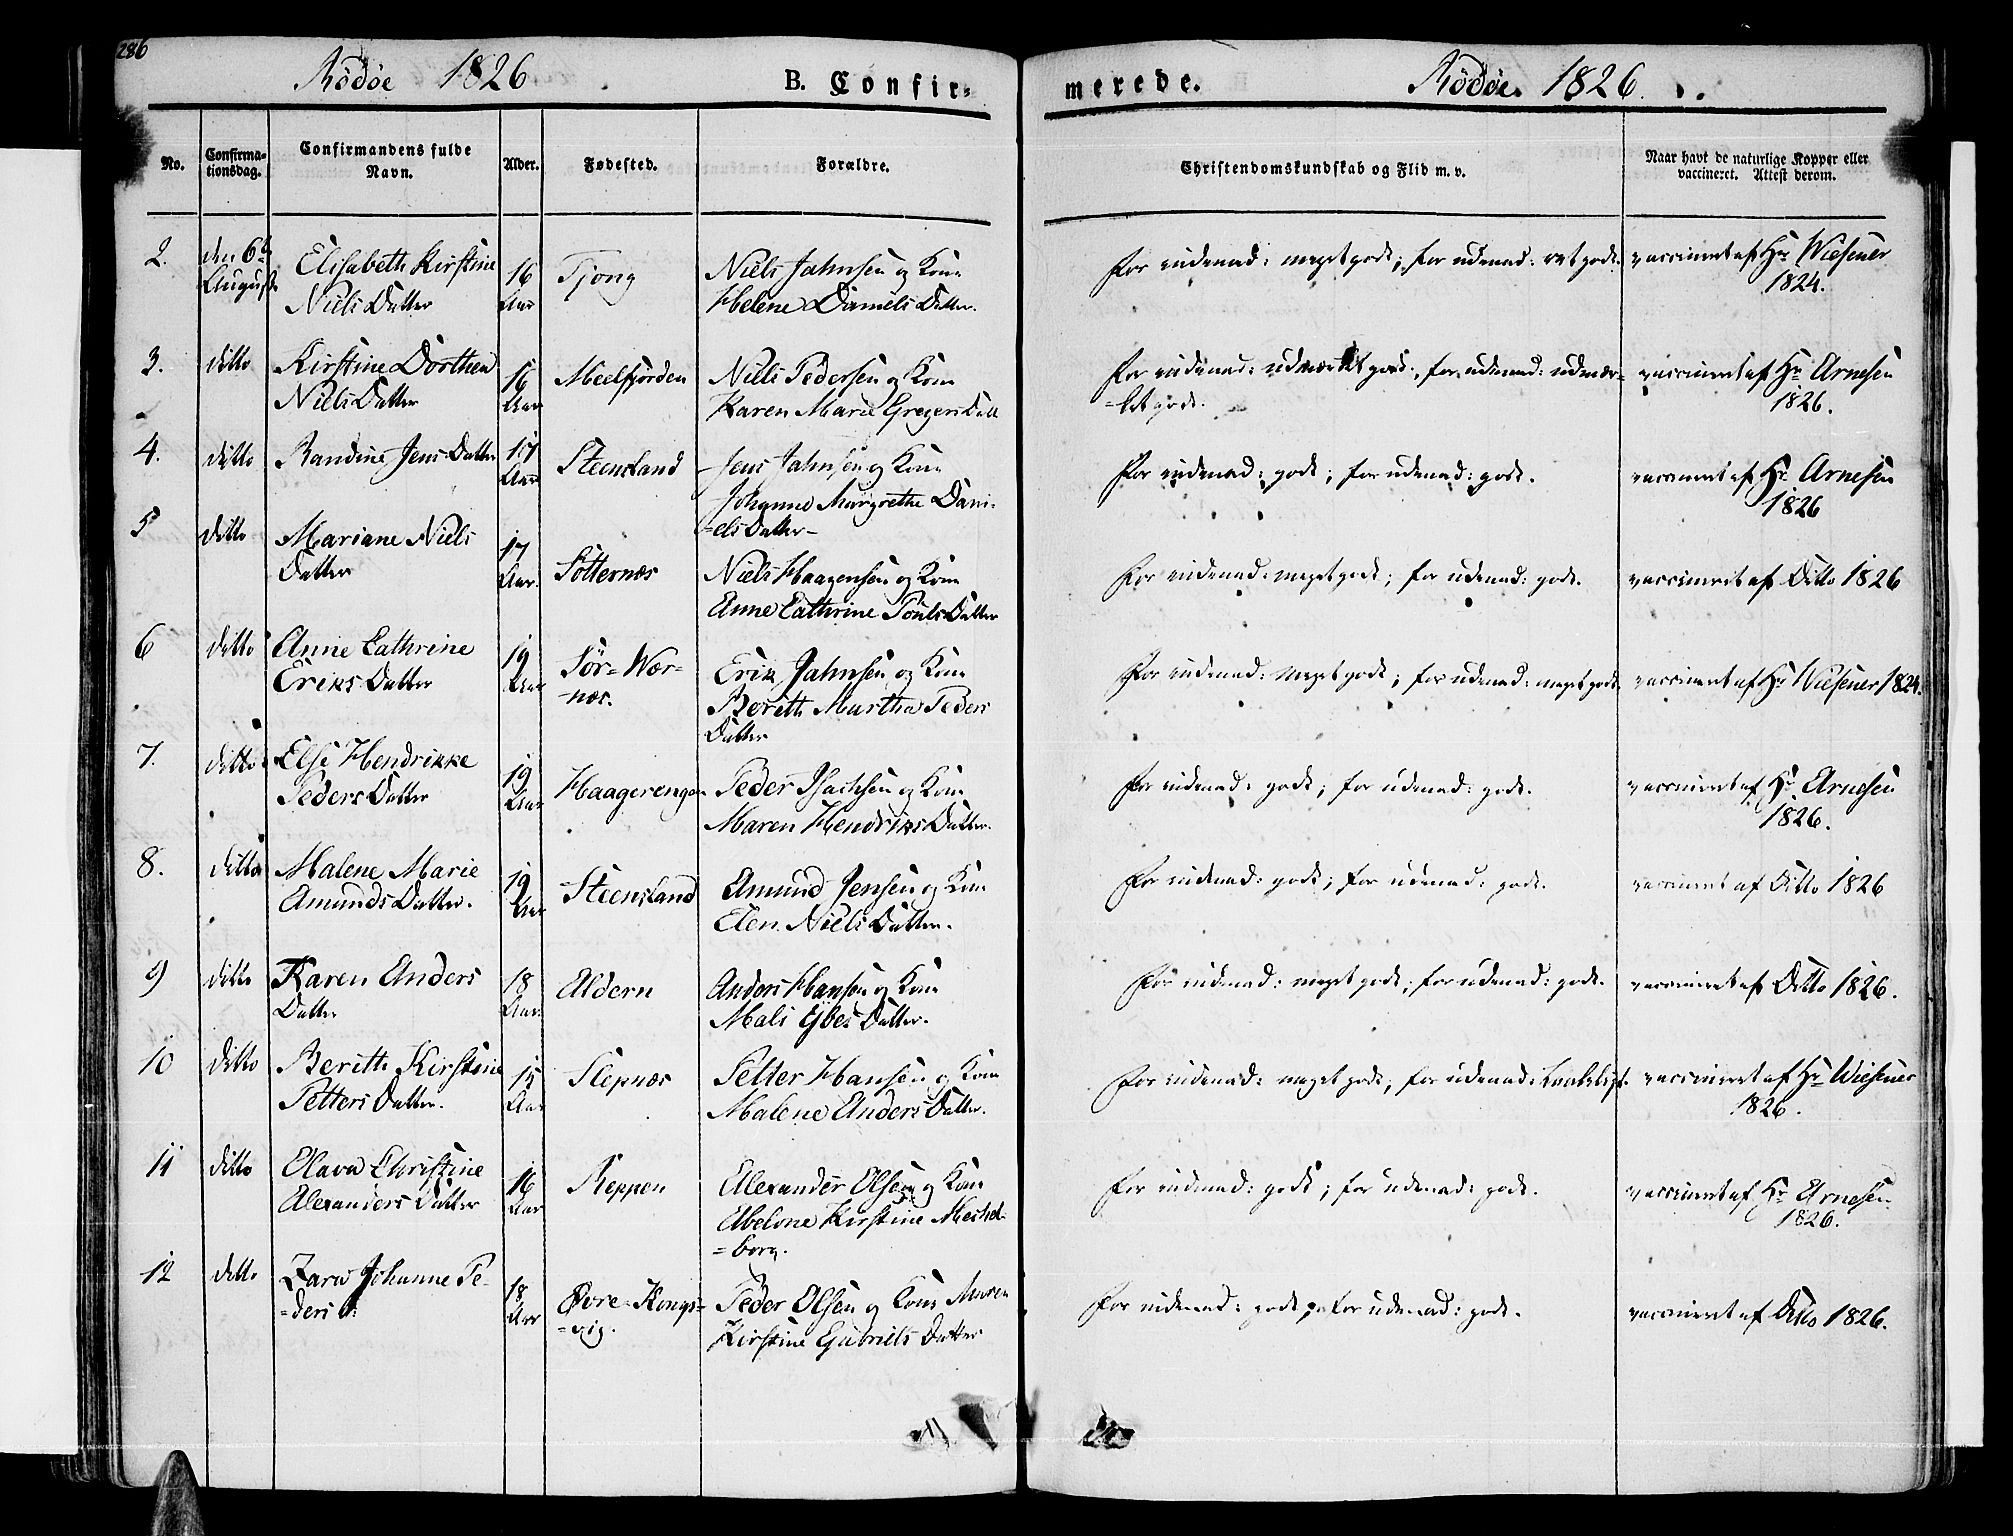 286
Rödöe 1826
B. Confir-
merede.
Rödöe 1826.
No.
Confirma-
tionsdag.
Confirmandens fulde
Navn.
Alder.
Fødested.
Forældre.
Christendomskundskab og Flid m. v.
Naar havt de naturlige Kopper eller
vaccineret. Attest derom.
2. den 6te Elisabeth Kirstine 16 Tjong Niels Jahnsen og Kone for indenad: meget godt; for udenad: ret godt. vaccineret af Hr Wiesener
August Niels Datter Aar Helene Daniels Datter. 1824.
3. ditto Kirstine Dorthea 16 Meelfjorden Niels Pedersen og Kone for indenad: udmærket godt, for udenad: udmær- vaccineret af Hr Arnesen
Niels Datter Aar Karen Marie Gregers Datt =ket godt. 1826.
4. ditto Randine Jens Datter 17 Steensland Jens Jahnsen og Kone for indenad: godt; for udenad: godt. vaccineret af Hr Arnesen
Aar Johanne Margrethe Dani- 1826
=els Datter
5 ditto Mariane Niels 17 Sötternæs Niels Haagensen og Kone for indenad: meget godt; for udenad: godt. vaccineret af Ditto 1826
Datter Aar. Anne Cathrine Pouls Datter
6 ditto Anne Cathrine 19 Sör-Wær- Erik Jahnsen og Kone for indenad: meget godt; for udenad: meget godt vaccineret af Hr Wiesener 1824.
Eriks Datter Aar =næs. Bereth Martha Peders
Datter
7. ditto Else Hendrikke 19 Haagerengen Peder Isachsen og Kone for indenad: godt; for udenad: godt. vaccineret af Hr Arnesen
Peders Datter Aar Maren Hendriks Datter. 1826.
8. ditto Malene Marie 19 Steensland Amund Jensen og Kone for indenad: godt; for udenad: godt. vaccineret af Ditto 1826
Amunds Datter. Aar Elen Niels Datter.
9 ditto Karen Anders 18 Aldern Anders Hansen og Kone for indenad: meget godt; for udenad: godt. vaccineret af Ditto 1826.
Datter Aar. Mali Datter.
10 ditto Berith Kirstine 15 Slepnæs Petter Hansen og Kone for indenad: meget godt; for udenad: vaccineret af Hr Wiesener
Petters Datter. Aar Malene Anders Datter. 1826.
11 ditto Olava Christine 16 Reppen Alexander Olsen og Kone for indenad: godt; for udenad: godt. vaccineret af Hr Arnesen
Alexanders Datter Aar Abelone Kirstine Mechel- 1826.
=borg.
12 ditto Zara Johanne Pe- 18 Övre-Kongs- Peder Olsen og Kone Maren for indenad: godt for udenad: godt. vaccineret af Ditto 1826.
=ders D: Aar =vig. Kirstine Gabriels Datter